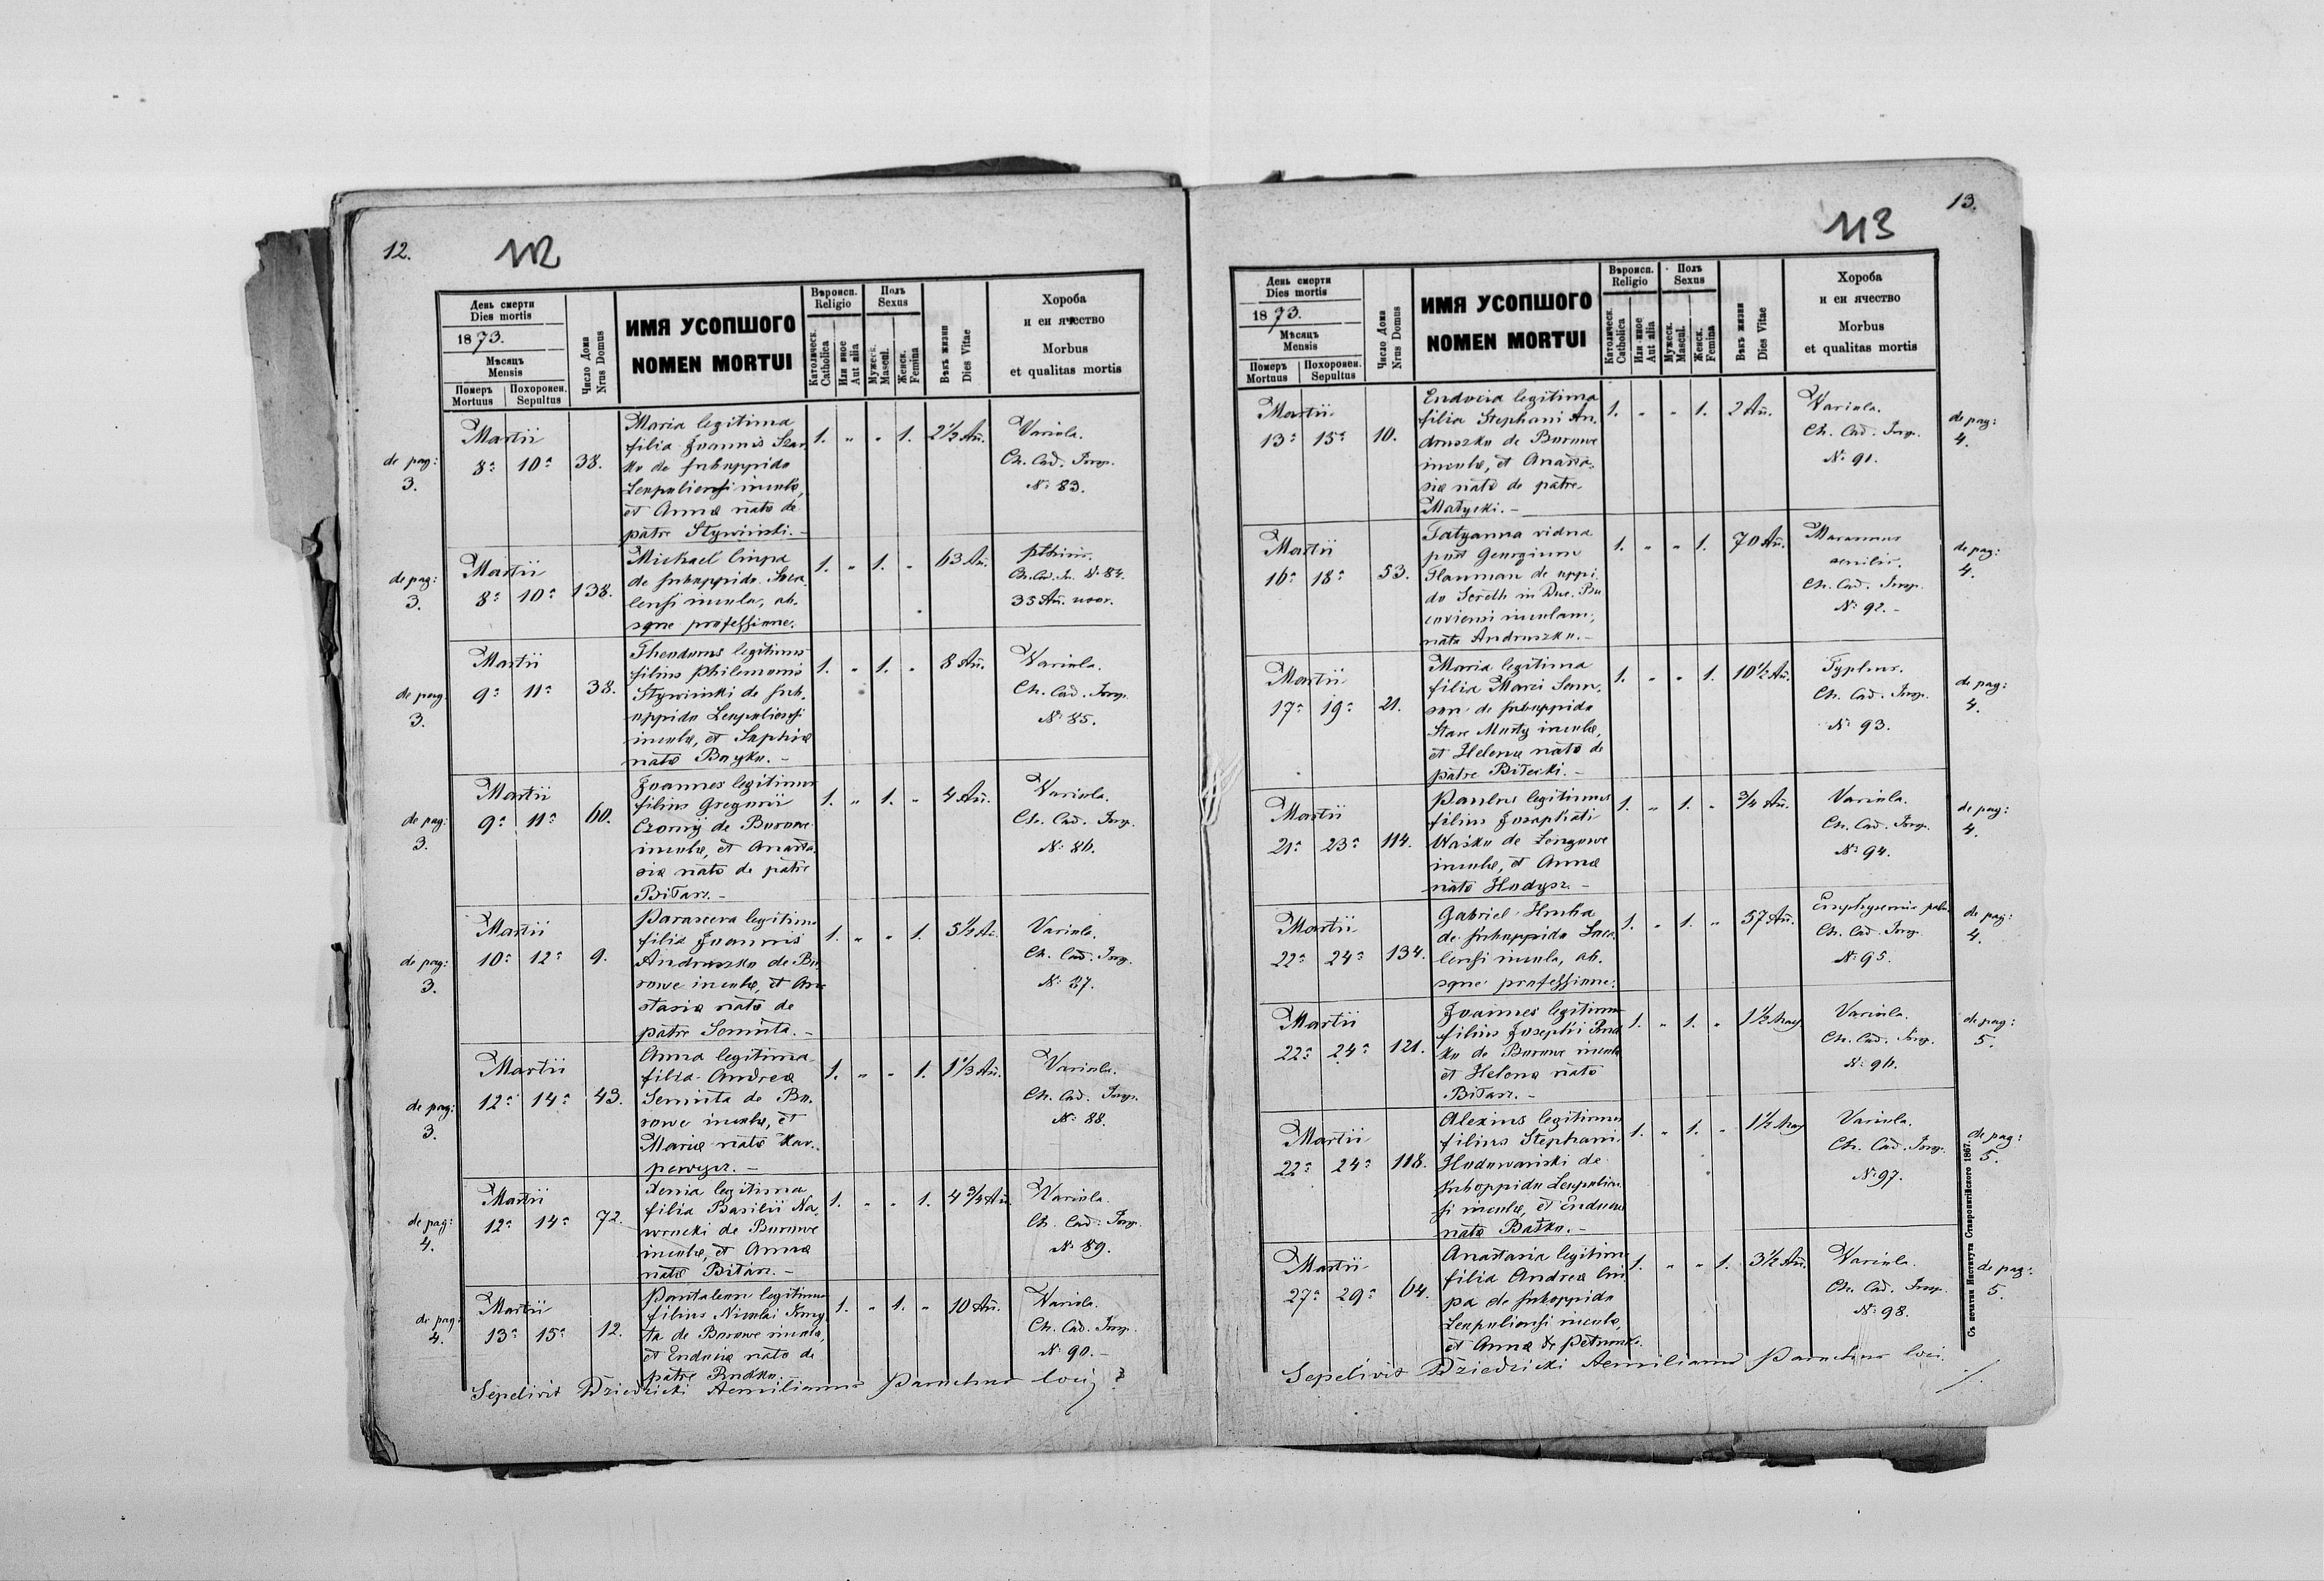 12.
112
День смерти
Dies mortis
1873.
Мѣсяць
Mensis
Померъ
Mortuus
Похоронен.
Sepultus
Число Дома
Nrus Domus
ИМЯ УСОПШОГО
NOMEN MORTUI
Вѣроисп.
Religio
Католическ.
Catholica
Или иное
Aut alia
Полъ
Sexus
Мужеск.
Mascul.
Женск.
Femina
Вѣкъ жизни
Dies Vitae
Хороба
и еи ячество
Morbus
et qualitas mortis
de pag:
3.
Martii
8a 10a 38.
Maria legitima
filia Joannis
ko de suboppido
Leopoliensi incolæ,
et Annæ nata de
patre Stywiński. –
1. " " 1. 2½ Añ.
Variola.
Ch. Cad. Insp.
N: 83.
de pag:
3.
Martii
8a 10a 138.
Michael Ciupa
de suboppido Soca
lensi incola, ab.
sque professione.
1. " 1. " 63 Añ.
pthisis.
Ch. Cad. In. N: 84.
35 Añ. uxor.
de pag:
3.
Martii
9a 11a 38.
Theodorus legitimus
filius Philemonis
Stywiński de sub.
oppido Leopoliensi
incolæ, et Sophiæ
nata Boyko. –
1. " 1. " 8 Añ.
Variola.
Ch. Cad. Insp.
N: 85.
de pag:
3.
Martii
9a 11a 60.
Joannes legitimus
filius Gregorii
Czornij de Borowe
incolæ, et Anasta.
siæ nata de patre
Biłan. –
1. " 1. " 4 Añ.
Variola.
Ch. Cad. Insp.
N: 86.
de pag:
3.
Martii
10a 12a 9.
Parasceva legitima
filia Joannis
Andruszko de Bo.
rowe incolæ, et Ana
stasiæ nata de
patre Semuta. –
1. " " 1. 5½ Añ.
Variola.
Ch. Cad. Insp.
N: 87.
de pag:
3.
Martii
12a 14a 43.
Anna legitima
filia Andreæ
Semuta de Bo.
rowe incolæ, et
Mariæ nata Kar.
powycz. –
1. " " 1. 1⅓ Añ.
Variola.
Ch. Cad. Insp.
N: 88.
de pag:
4.
Martii
12a 14a 72.
Xenia legitima
filia Basilii Na.
wrocki de Borowe
incolæ, et Annæ
nata Biłan. –
1. " " 1. 4¾ Añ.
Variola.
Ch. Cad. Insp.
N: 89.
de pag:
4.
Martii
13a 15a 12.
Pantaleon legitimus
filius Nicolai
ta de Borowe incolæ,
et Eudociæ nata de
patre Rudko.
1. " 1. " 10 Añ.
Variola.
Ch. Cad. Insp.
N: 90. –
Sepelivit Dziedzicki Aemilianus Parochus loci
13.
113
День смерти
Dies mortis
1873.
Мѣсяць
Mensis
Померъ
Mortuus
Похоронен.
Sepultus
Число Дома
Nrus Domus
ИМЯ УСОПШОГО
NOMEN MORTUI
Вѣроисп.
Religio
Католическ.
Catholica
Или иное
Aut alia
Полъ
Sexus
Мужеск.
Mascul.
Женск.
Femina
Вѣкъ жизни
Dies Vitae
Хороба
и еи ячество
Morbus
et qualitas mortis
Martii
13a 15a 10.
Eudocia legitima
filia Stephani An.
druszko de Borowe
incolæ, et Anasta.
siæ nata de patre
Matycki. –
1. " " 1. 2 Añ.
Variola.
Ch. Cad. Insp.
N: 91.
de pag:
4.
Martii
16a 18a 53.
Tatyanna vidua
post Georgium
Flauman de oppi.
do Sereth in Duc. Bu
coviensi incolam,
nata Andruszko. –
1. " " 1. 70 Añ.
Marasmus
senilis.
Ch. Cad. Insp.
N: 92. –
de pag:
4.
Martii
17a 19a 21.
Maria legitima
filia Marci Sam.
son de suboppido
Stare Mosty incolæ,
et Helenæ nata de
patre Biłecki. –
1. " " 1. 10½ Añ.
Typhus.
Ch. Cad. Insp.
N: 93.
de pag:
4.
Martii
21a 23a 114.
Paulus legitimus
filius Josaphati
Waśko de Longowe
incolæ, et Annæ
nata Hodysz. –
1. " 1. " ¾ Añ.
Variola.
Ch. Cad. Insp.
N: 94.
de pag:
4.
Martii
22a 24a 134.
Gabriel Hruba
de suboppido Soca.
lensi incola, ab.
sque professione.
1. " 1. " 57 Añ.
Emphysemis
Ch. Cad. Insp.
N: 95.
de pag:
4.
Martii
22a 24a 121.
Joannes legitimus
filius Josephi Rud
ko de Borowe incolæ
et Helenæ nata
Biłan. –
1. " 1. " 1½
Variola.
Ch. Cad. Insp.
N: 96.
de pag:
5.
Martii
22a 24a 118.
Alexius legitimus
filius Stephani
Hodowański de
suboppido Leopolien
si incolæ, et Eudociæ
nata Bałko. –
1. " 1. " 1½
Variola.
Ch. Cad. Insp.
N: 97.
de pag:
5.
Martii
27a 29a 64.
Anastasia legitima
filia Andreæ Ciu
pa de suboppido
Leopoliensi incolæ,
et Annæ de
1. " " 1. 3½ Añ.
Variola.
Ch. Cad. Insp.
N: 98.
de pag:
5.
Sepelivit Dziedzicki Aemilianus Parochus loci.
Съ печатни Института Ставропигійского 1867.